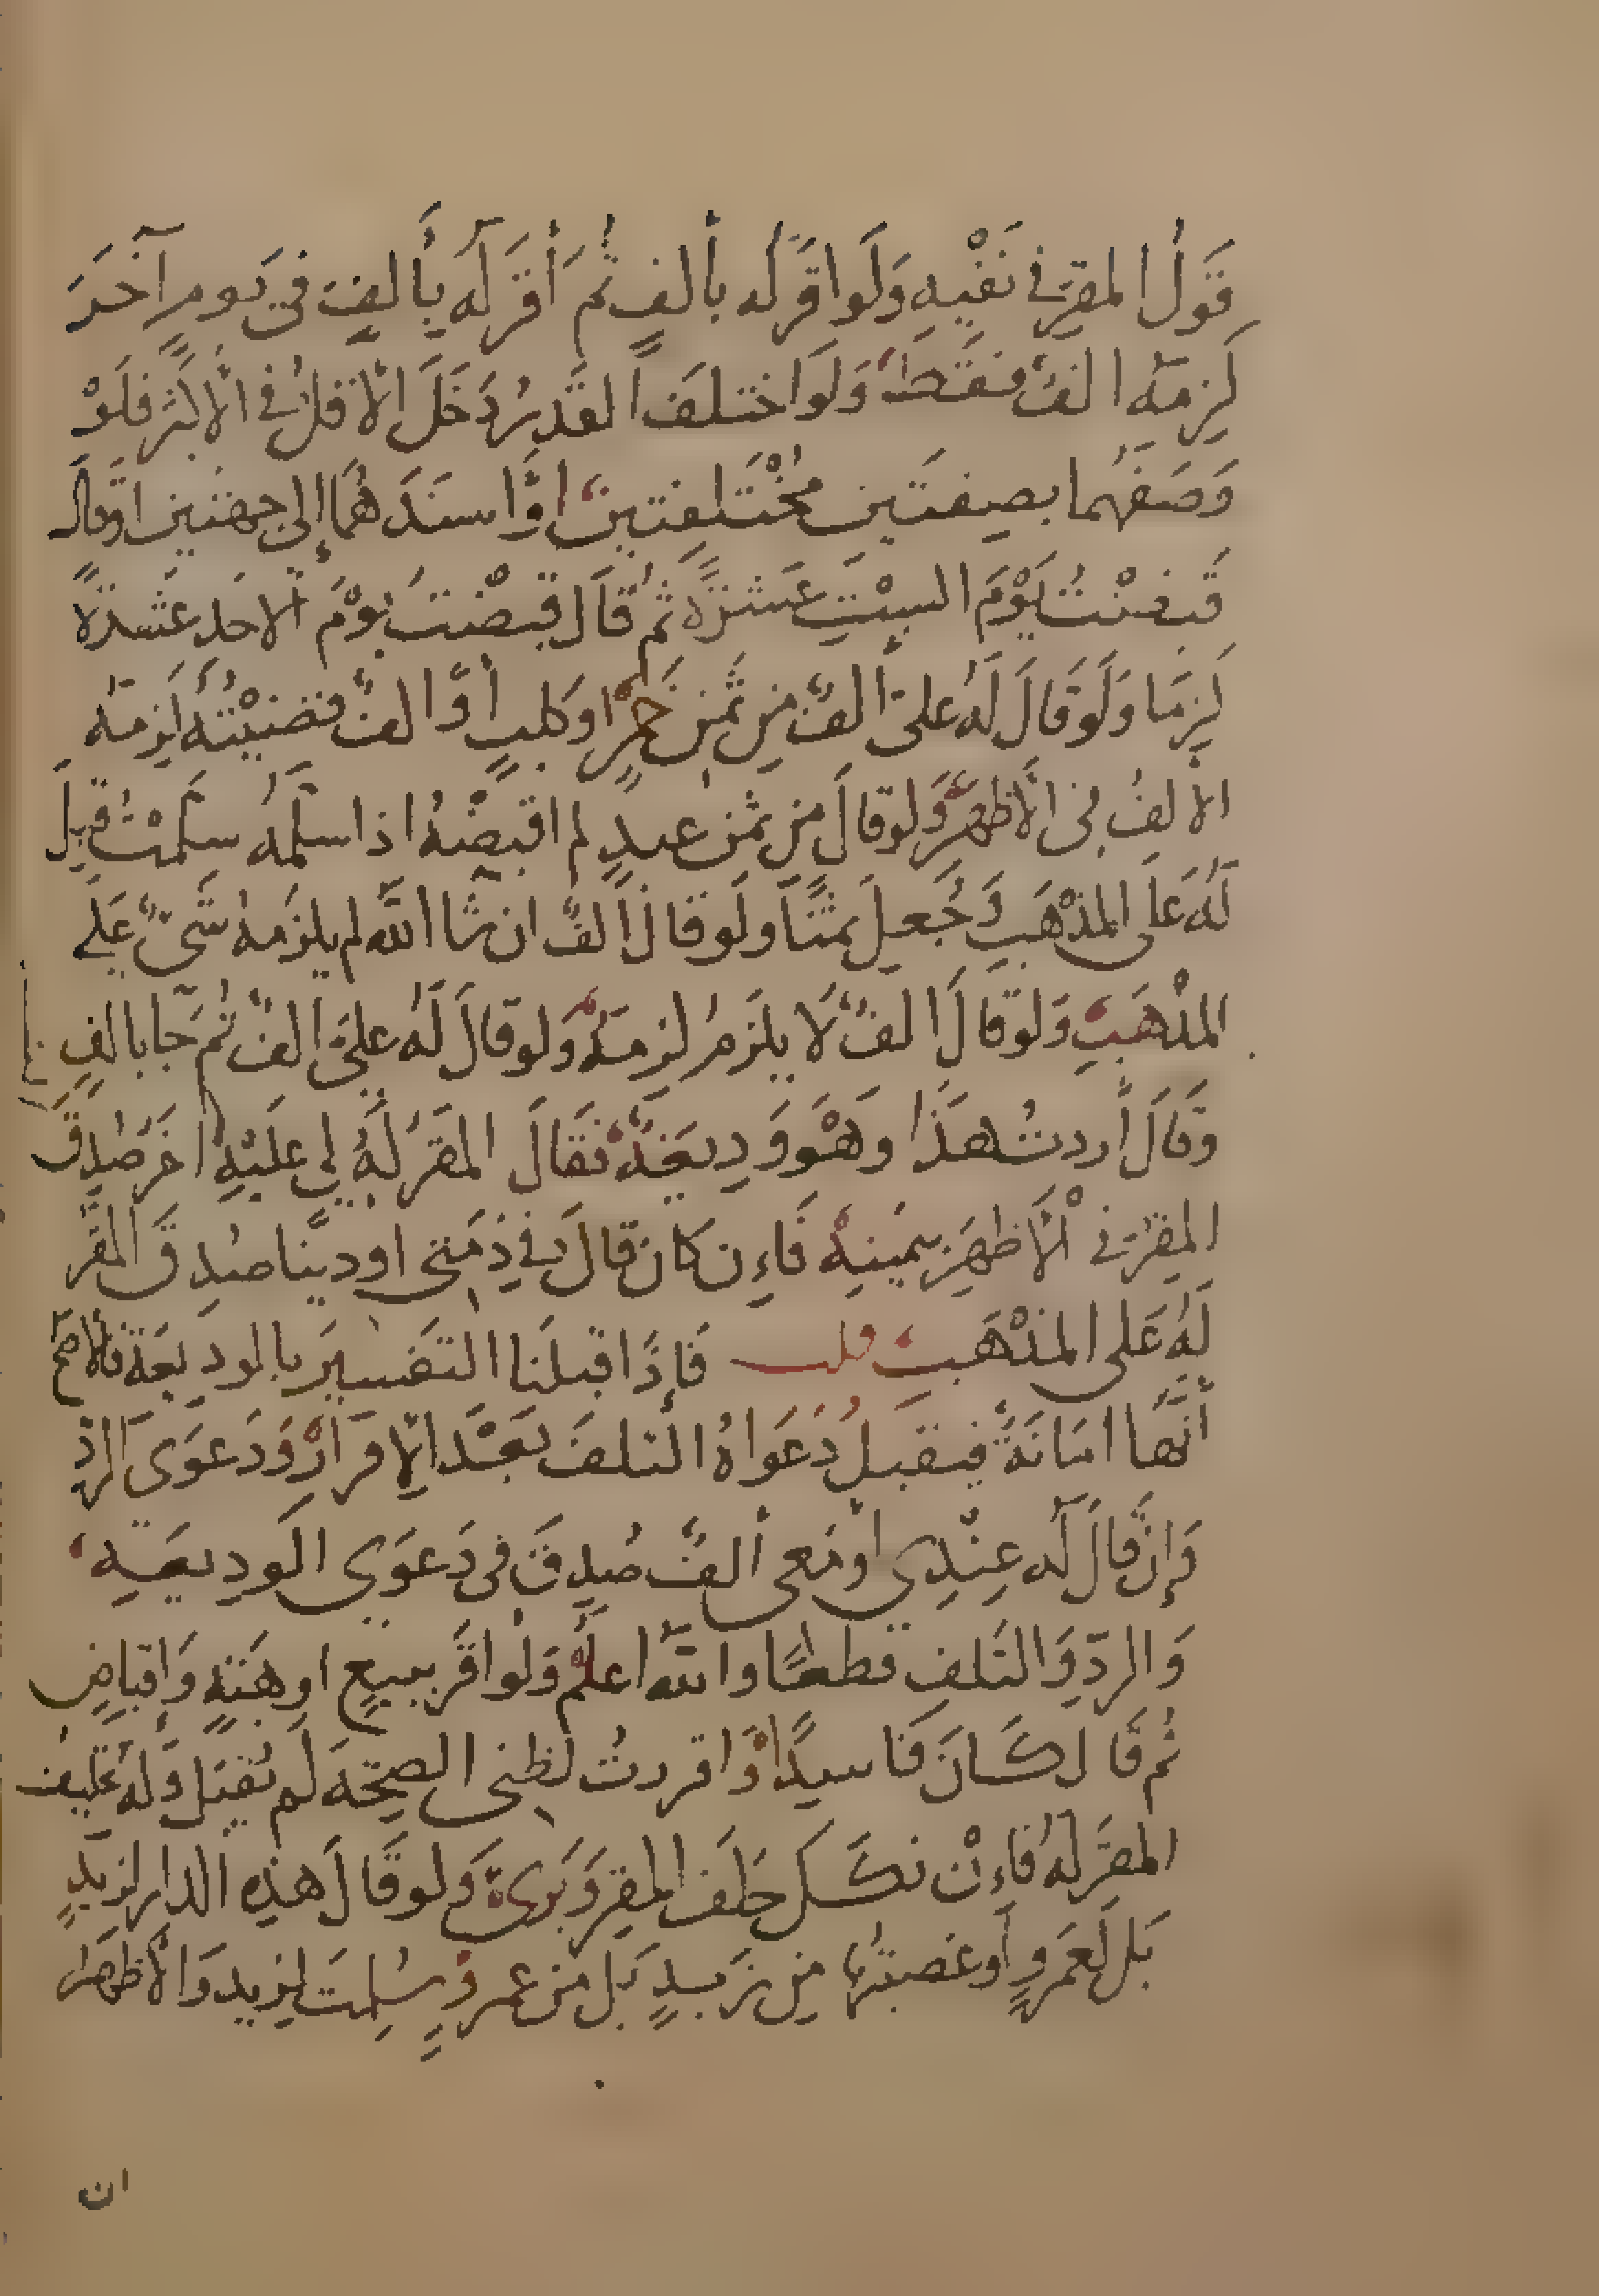 قَوْلُ المقِرِّ في نَفْيِهِ وَلَو اقَرَّ لَه بألفٍ ثُم أقَرَّ لَه بِألفٍ في يَومٍ آخَرَ
لَزِمَه الفٌ فقَطْ وَلَو اختلَفَ القَدرُ دَخَلَ الاقلُّ في الأكثر فلَوْ
وَصَفَهُما بصِفتَين مُخْتَلفتين اوْ اسنَدَهُمَا إلى جِهتَين اوقالَ
قَبضْتُ يَوْمَ السبْتِ عَشرَةً ثم قَالَ قبَضْتُ يَوْمَ الاحَد عَشَرَةً
لَزِمَا وَلَو قَالَ لَهُ عليَّ ألفٌ مِن ثَمنِ خَمْرٍ اوكَلبٍ أوْ الفٌ قضَيْتُه لَزِمَهُ
الالفُ في الأظهَرِ وَلو قالَ مِن ثمنِ عبدٍ لم اقبِضْهُ اذا سَلَّمَهُ سَلَّمْتُ قُبِلَ
لَهُ عَلَى المذْهَبِ وَجُعِلَ ثمَنًا وَلَو قالَ الفٌ ان شا اللهُ لم يلزَمهُ شَىٌ عَلَى
المذْهَبِ وَلَو قَالَ الفٌ لَا يلزَمُ لزِمَهُ وَلو قالَ لَهُ عَليَّ الفٌ ثُمَّ جَا بالفٍ
وَقَالَ أردتُ هَذَا وَهْوَ وَدِيعَةٌ فقَالَ المقَرُّ لَهُ لِي عَلَيْهِ اخَرُ صُدِقَ
المقِرُّ في الأظهَرِ بيَمينِهِ فَإن كَانَ قَالَ في ذِمّتي اودينًا صُدِقَ المقَرُّ
لَهُ عَلى المذْهَبِ قلت فَإذَا قبِلنَا التفسيرَ بالوديعَة فالأصَحُّ
أنَّهَا امَانَةٌ فيقبَلُ دَعْوَاهُ التلفَ بَعْدَ الإقرَارِ وَدَعوَى الردِّ
وَإن قَالَ لَه عِنْدِي أومَعِي ألفٌ صُدِقَ في دَعوَى الوَدِيعَةِ
وَالردِّ وَالتَلفِ قطعًا والله اعلَمُ وَلَو اقَرَّ ببيعٍ اوهِبَةٍ وَإقبَاضٍ
ثُم قَال كَانَ فَاسِدًا وَاقررتُ لظنّى الصِحَّة لَم يُقبَل وَلَهُ تحليف
المقَرِّ لَهُ فَإنْ نَكَلَ حَلَفَ المقِرُّ وَبَرِئَ وَلو قَالَ هَذِهِ الدار لزيدٍ
بَل لعَمرٍو أو غصَبتُها مِن زَيدٍ بَل مِن عمرٍو سُلمَت لزيد وَالأظهَرُ
ان